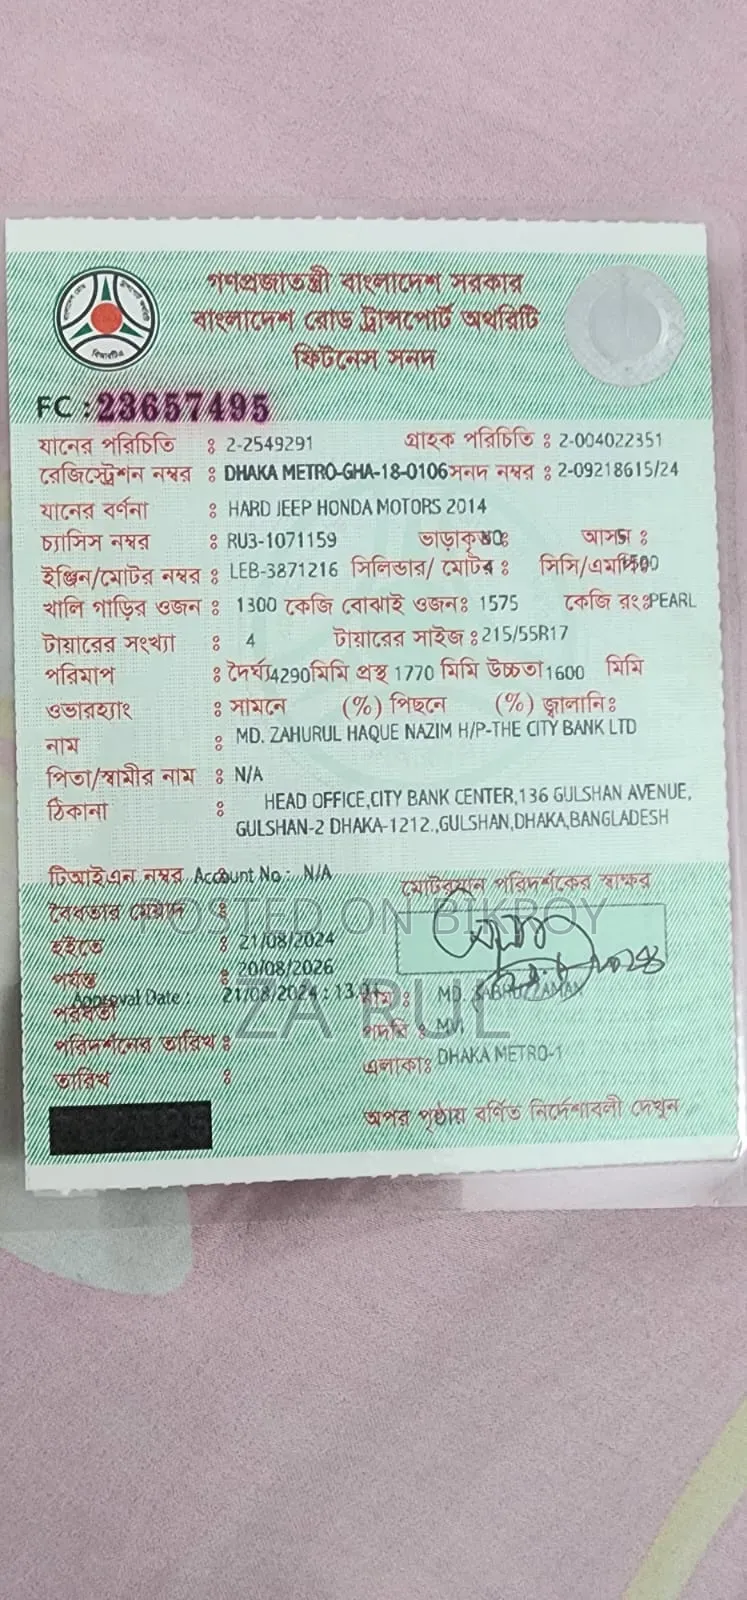 গণপ্রজাতন্ত্রী বাংলাদেশ সরকার
বাংলাদেশ রোড ট্রান্সপোর্ট অথরিটি
ফিটনেস সনদ
বিআরটিএ
FC : 23657495
যানের পরিচিতি : 2-2549291 গ্রাহক পরিচিতি : 2-004022351
রেজিস্ট্রেশন নম্বর : DHAKA METRO-GHA-18-0106 সনদ নম্বর : 2-09218615/24
যানের বর্ণনা : HARD JEEP HONDA MOTORS 2014
চ্যাসিস নম্বর : RU3-1071159 ভাড়াকৃত : NO আসন : 5
ইঞ্জিন/মোটর নম্বর : LEB-3871216 সিলিন্ডার/ মোটর : 4 সিসি/এমপি : 1500
খালি গাড়ির ওজন : 1300 কেজি বোঝাই ওজন : 1575 কেজি রং : PEARL
টায়ারের সংখ্যা : 4 টায়ারের সাইজ : 215/55R17
পরিমাপ : দৈর্ঘ্য 4290 মিমি প্রস্থ 1770 মিমি উচ্চতা 1600 মিমি
ওভারহ্যাং : সামনে (%) পিছনে (%) জ্বালানি :
নাম : MD. ZAHURUL HAQUE NAZIM H/P-THE CITY BANK LTD
পিতা/স্বামীর নাম : N/A
ঠিকানা : HEAD OFFICE,CITY BANK CENTER,136 GULSHAN AVENUE,
GULSHAN-2 DHAKA-1212.,GULSHAN,DHAKA,BANGLADESH
টিআইএন নম্বর Account No : N/A
মোটরযান পরিদর্শকের স্বাক্ষর
বৈধতার মেয়াদ :
POSTED ON BIKROY
হইতে : 21/08/2024
পর্যন্ত : 20/08/2026
Approval Date : 21/08/2024 : 13. নাম : MD. SABRUZZAMAN
ZA RUL
পরবর্তী পদবি : MVI
পরিদর্শনের তারিখ :
এলাকা : DHAKA METRO-1
তারিখ :
অপর পৃষ্ঠায় বর্ণিত নির্দেশাবলী দেখুন